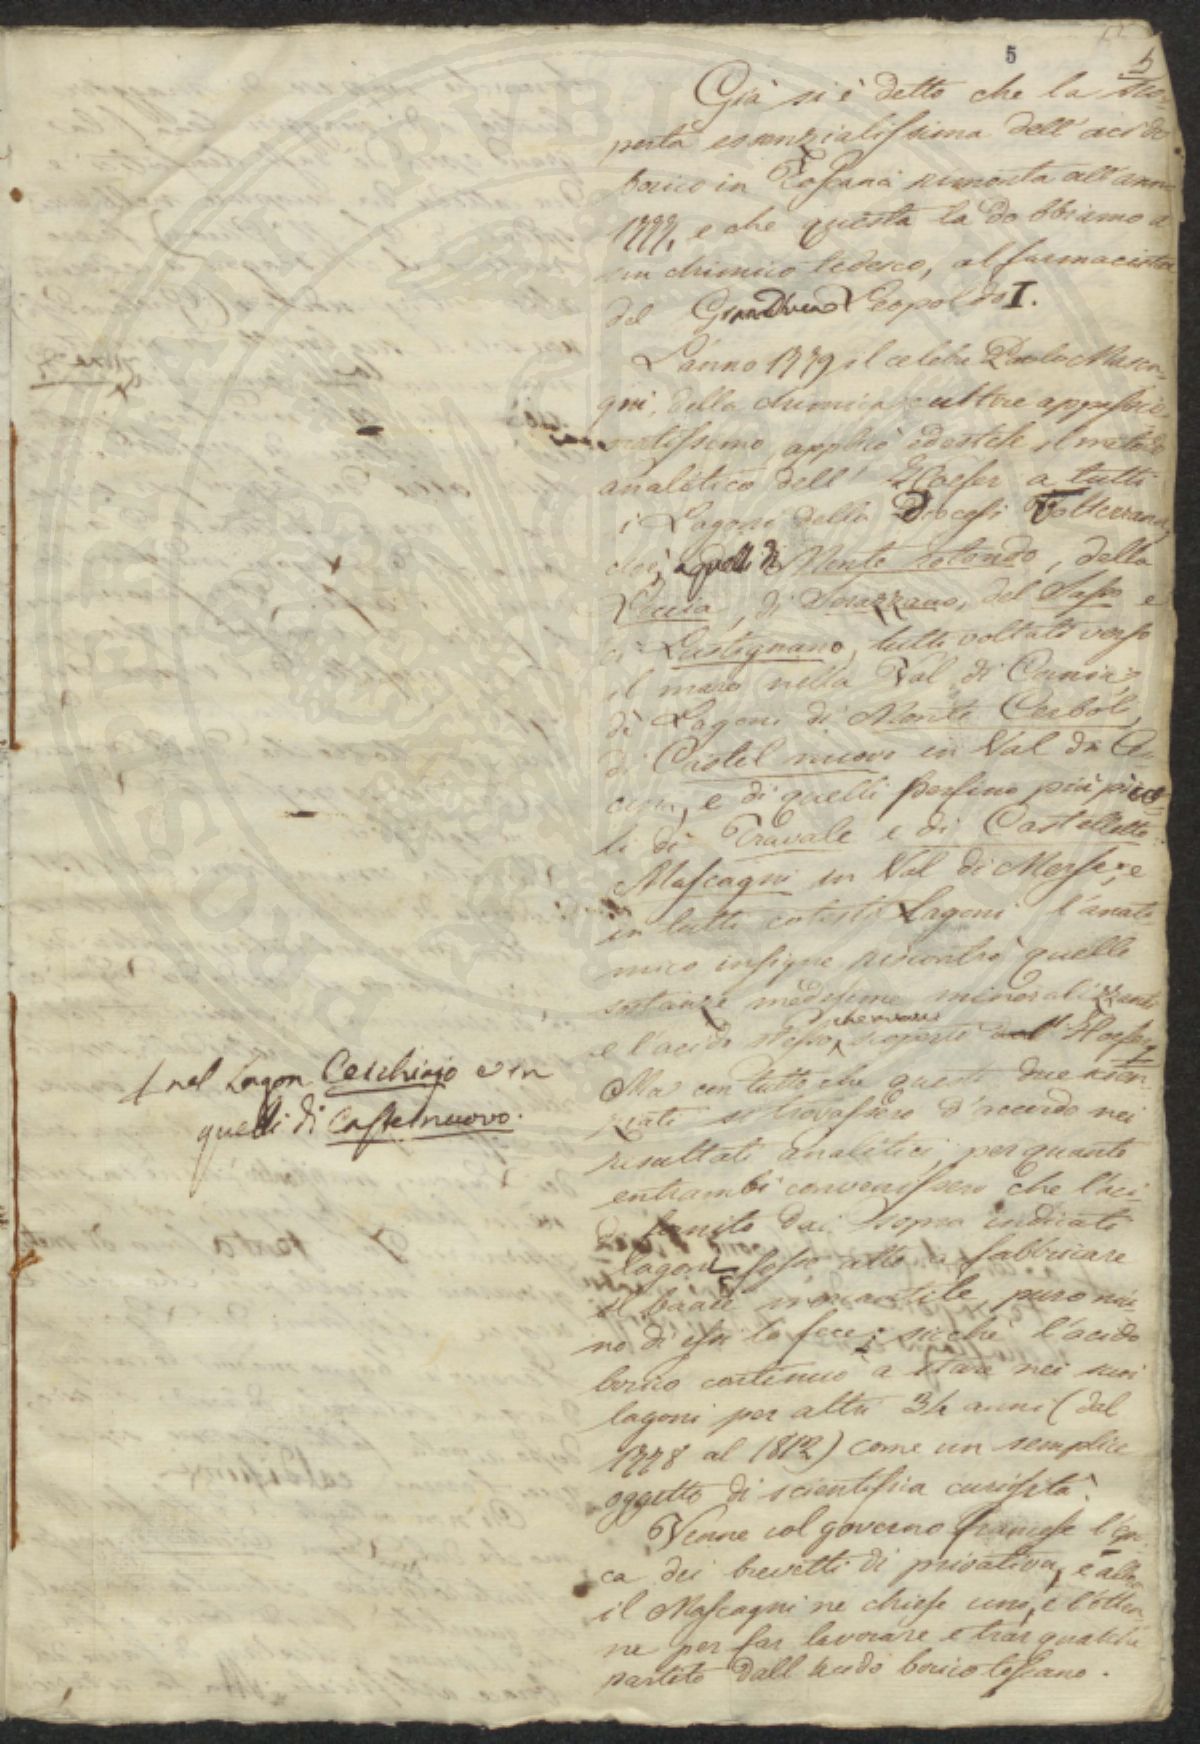 5
5
Già si è detto che la sco-
perta essenzialissima dell'acido
borico in Toscana rimonta all'anno
1777, e che questa la dobbiamo a
un chimico tedesco, al farmacista
del GranDuca Leopoldo I.
L'anno 1779 il celebre Paolo Masca-
gni, della chimica cultore appassio-
natissimo, applicò ed estese il metodo
analitico dell' Hoefer a tutti
i Lagoni della Diocesi Volterrana,
cioè, a quelli di Monte rotondo, della
Leccia, di Serazzano, del Sasso e
di Lustignano, tutti voltati verso
il mare nella Val di Cornia;
di Lagoni di Monte Cerboli,
di Castel nuovo in Val di Ce-
cina, e di quelli perfino più picco-
li di Travale e di Castelletto
Mascagni in Val di Merse; e
in tutti cotesti Lagoni l'anato-
mico insigne riscontrò quelle
sostanze medesime mineralizzanti
e l'acido stesso, scoperti dall' Hoefer
Ma con tutto che questi due scien-
ziati si trovassero d'accordo nei
resultati analitici, per quanto
entrambi convenissero che l'aci-
do fornito dai sopra indicati
lagoni fosse atto a fabbricare
il borace mercantile, pure niu-
no di essi lo fece; sicchè l'acido
borico continuò a stare nei suoi
lagoni per altri 34 anni (dal
1778 al 1812) come un semplice
oggetto di scientifica curiosità.
Venne col governo francese l'epo-
ca dei brevetti di privativa, e allora
il Mascagni ne chiese uno, e l'otten-
ne per far lavorare e trar qualche
partito dall'acido borico toscano.
nel Lagon Cerchiajo e in
quelli di Castelnuovo.